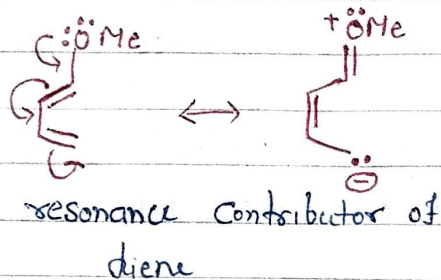 :ÖMe
+ ÖMe
⊖
resonance Contributor of
diene